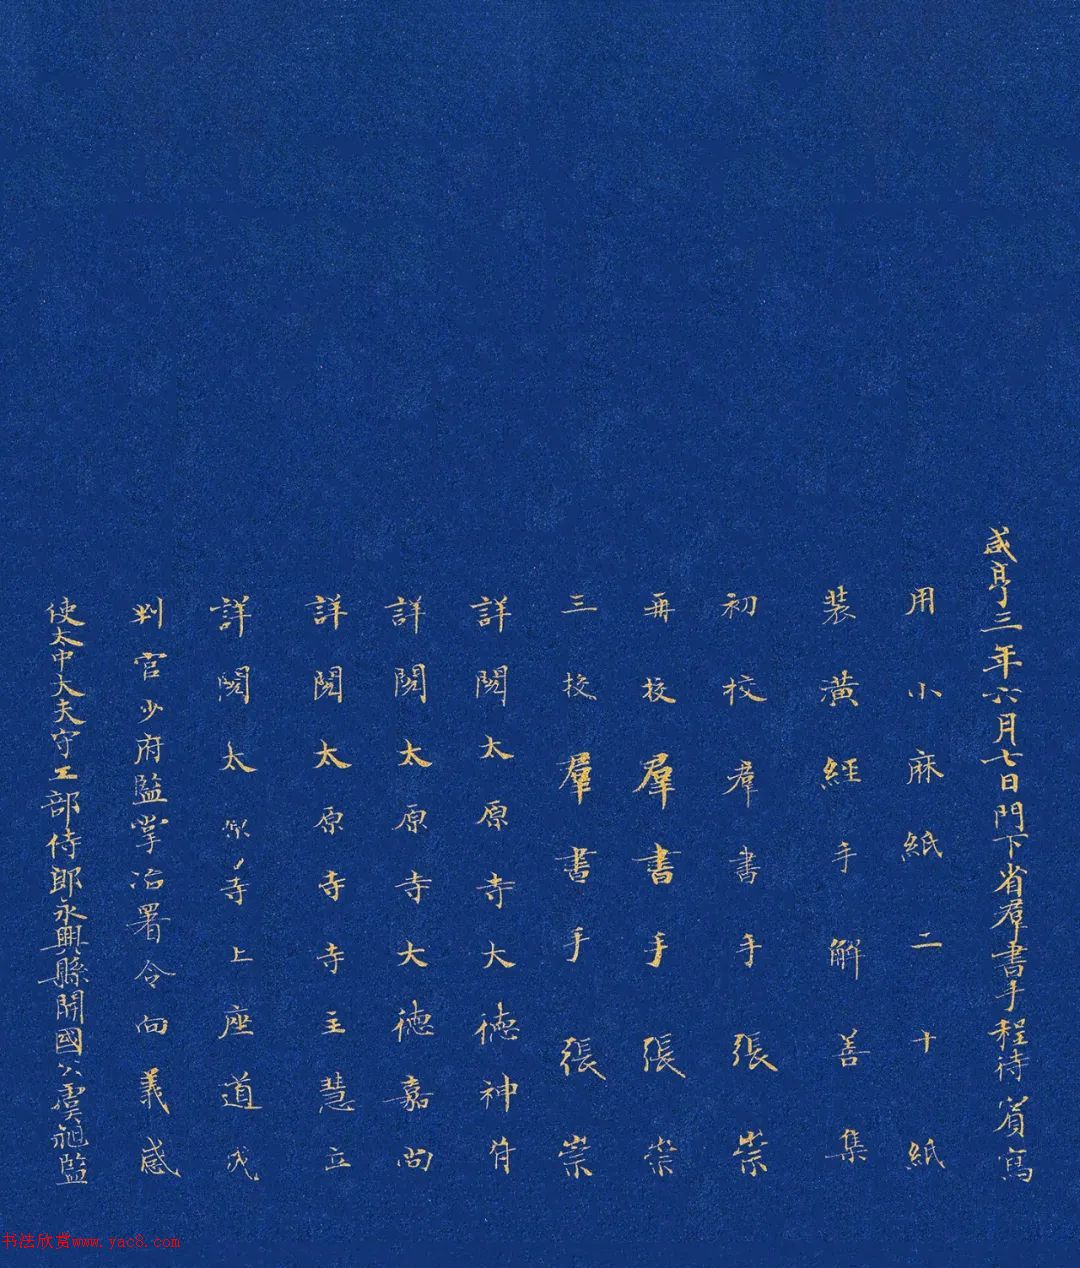 咸亨三年六月七日門下省羣書手程待賓寫
用小麻紙二十紙
裝潢經手解善集
初校羣書手張崇
再校羣書手張崇
三校羣書手張崇
詳閱太原寺大德神符
詳閱太原寺大德嘉尚
詳閱太原寺寺主慧立
詳閱太原寺上座道成
判官少府監掌冶署令向義感
使太中大夫守工部侍郎永興縣開國公虞昶監
书法欣赏www.yac8.com